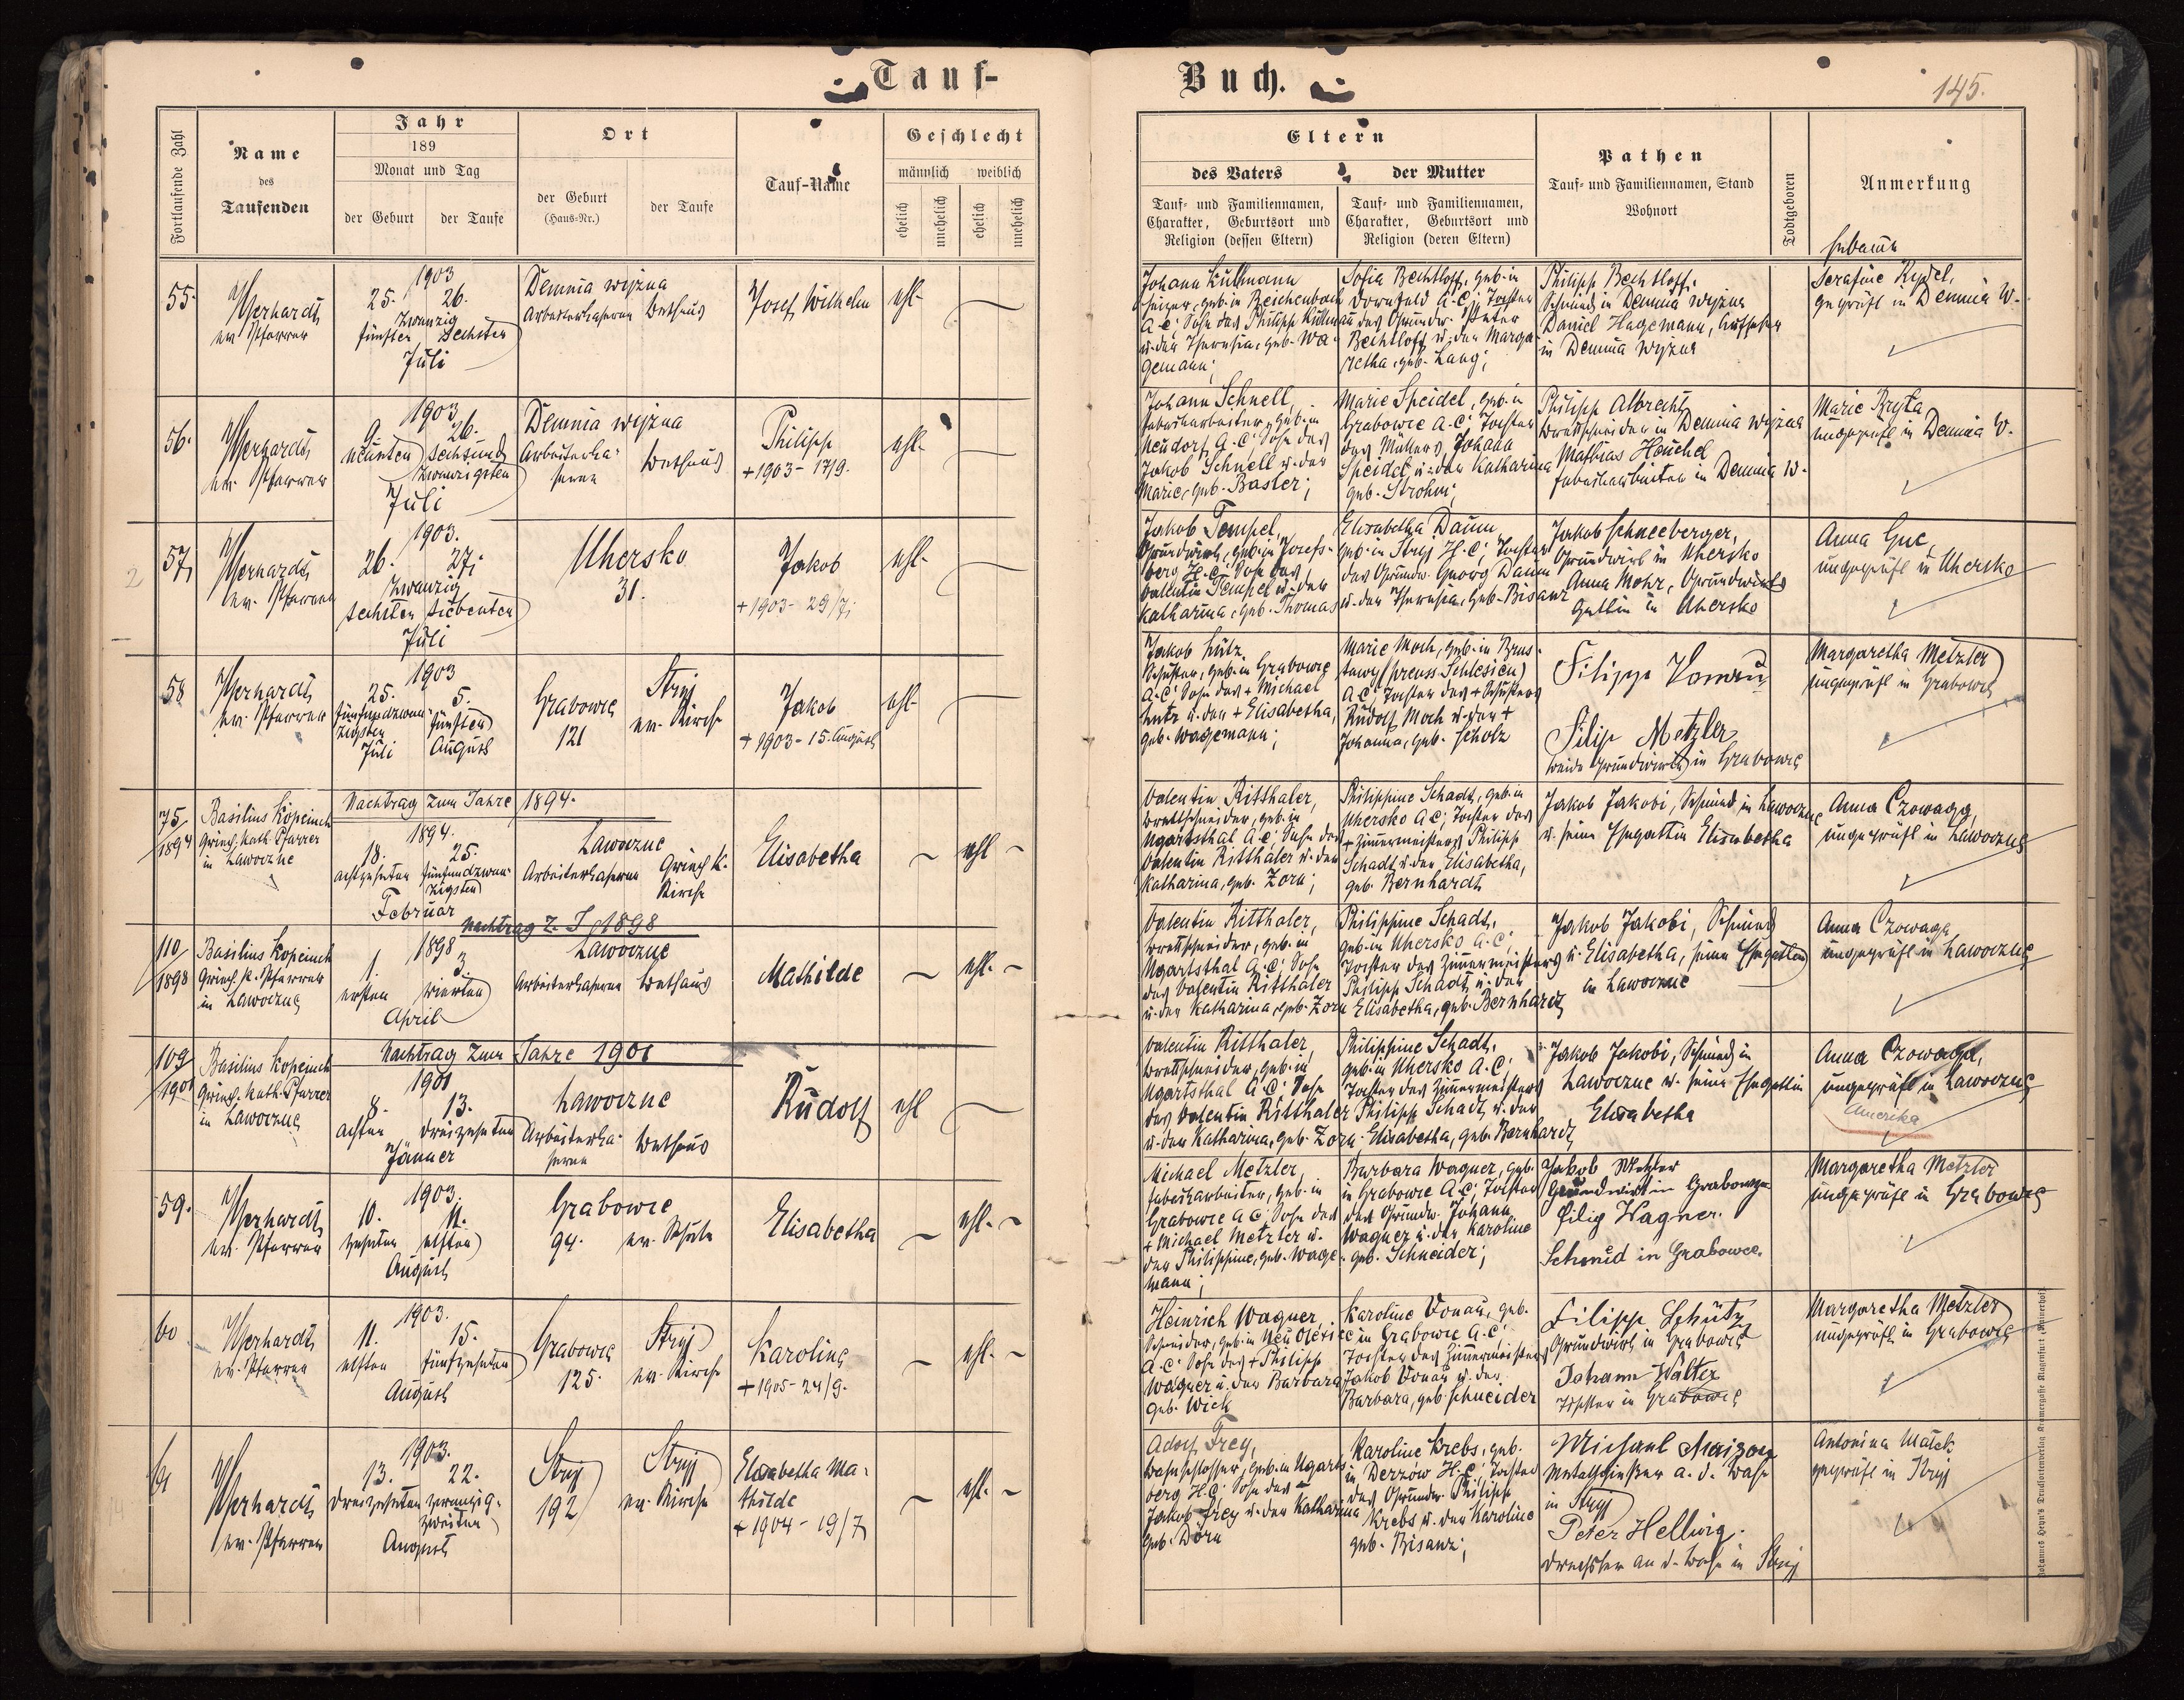 Tauf-
Buch.
145.
Fortlaufende Zahl
Name
des
Taufenden
Jahr
189
Monat und Tag
der Geburt
der Taufe
Ort
der Geburt
(Haus-Nr.)
der Taufe
Tauf-Name
Geschlecht
männlich
weiblich
ehelich
unehelich
ehelich
unehelich
Eltern
des Vaters
Tauf- und Familiennamen,
Charakter, Geburtsort und
Religion (dessen Eltern)
der Mutter
Tauf- und Familiennamen,
Charakter, Geburtsort und
Religion (deren Eltern)
Pathen
Tauf- und Familiennamen, Stand
Wohnort
Todtgeboren
Anmerkung
Hebamme
55.
ev. Pfarrer
1903
25. 26.
Zwanzig
fünften Sechsten
Juli
Demnia wyżna
Arbeiterkaserne Bethaus
Josef Wilhelm
ehl-
Johann Kullmann
Heizer, geb. in Reichenbach
A.C; Sohn des Philipp Kullmann
u. der Theresia, geb. Wa-
gemann;
Sofia Bechtloff, geb. in
Dornfeld A.C; Tochter
des Grundw. Peter
Bechtloff u. der Marga-
retha, geb. Lang;
Philipp Bechtloff,
Schmied in Demnia wyżna
Daniel Hagemann, Aufseher
in Demnia wyżna
Serafine Rydel,
geprüft in Demnia W.
56.
ev. Pfarrer
1903
9. 26.
neunten sechsund
zwanzigsten
Juli
Demnia wyżna
Arbeiterka-
serne Bethaus
Philipp
+ 1903 - 17/9.
ehl-
Johann Schnell,
Fabriksarbeiter, geb. in
Neudorf A.C; Sohn des
Jakob Schnell u. der
Marie, geb. Baster;
Marie Speidel, geb. in
Grabowce A.C; Tochter
des Müllers Johann
Speidel u. der Katharina
geb. Strohm;
Philipp Albrecht,
Brettschneider in Demnia wyżna
Mathias Heuchel
Fabriksarbeiter in Demnia W.
Marie Kryta
ungeprüft in Demnia W.
57,
ev. Pfarrer
1903.
26. 27;
Zwanzig
sechsten siebenten
Juli
Uhersko
31.
Jakob
+ 1903 - 29/7;
ehl-
Jakob Tempel,
Grundwirth, geb. in Josefs-
berg H.C; Sohn des
Valentin Tempel u. der
Katharina, geb. Thomas
Elisabetha Daum
geb. in Stryj H.C; Tochter
des Grundw. Georg Daum
u. der Theresia, geb. Bisanz
Jakob Schneeberger,
Grundwirth in Uhersko
Anna Mohr, Grundwirths
Gattin in Uhersko
Anna Guc,
ungeprüft in Uhersko
58
ev. Pfarrer
1903
25. 5.
fünfundzwan-
zigsten fünften
Juli August
Grabowce
121
Stryj
ev. Kirche
Jakob
+ 1903 - 15. August
ehl-
Jakob Lutz,
Schuster, geb. in Grabowce
A.C; Sohn des + Michael
Lutz u. der + Elisabetha,
geb. Wagemann;
Marie Moch, geb. in Brus-
tawe (preuss. Schlesien)
A.C; Tochter des + Schusters
Rudolf Moch u. der +
Johanna, geb. Scholz
Filipp
Filip Metzler
beide Grundwirthe in Grabowce
Margaretha Metzler
ungeprüft in Grabowce
75/
1894
Basilius Kopeinch
Griech. Kath. Pfarrer
in Lawoczne
Nachtrag zum Jahre 1894.
1894.
18. 25.
achtzehnten fünfundzwan-
zigsten
Februar
Lawoczne
Arbeiterkaserne Griech K.
Kirche
Elisabetha
ehl-
Valentin Ritthaler,
Brettschneider, geb. in
Ugartsthal A.C; Sohn des
Valentin Ritthaler u. der
Katharina, geb. Zorn;
Philippine Schadt, geb. in
Uhersko A.C; Tochter des
+ Zimmermeisters Philipp
Schadt u. der Elisabetha,
geb. Bernhardt
Jakob Jakobi, Schmied in Lawoczne
u. seine Ehegattin Elisabetha
Anna Czowaga,
ungeprüft in Lawoczne
110/
1898
Basilius Kopeinch
Griech. K. Pfarrer
in Lawoczne
Nachtrag z. J. 1898
1898
1. 3
ersten vierten
April
Lawoczne
Arbeiterkaserne Bethaus
Mathilde
ehl-
Valentin Ritthaler,
Brettschneider, geb. in
Ugartsthal A.C; Sohn
des Valentin Ritthaler
u. der Katharina, geb. Zorn
Philippine Schadt,
geb. in Uhersko A.C;
Tochter des Zimmermeisters
Philipp Schadt u. der
Elisabetha, geb. Bernhardt
Jakob Jakobi, Schmied
u. Elisabetha, seine Ehegattin
in Lawoczne
Anna Czowaga
ungeprüft in Lawoczne
109/
1901
Basilius Kopeinch
Griech. Kath. Pfarrer
in Lawoczne
Nachtrag zum Jahre 1901
1901
8. 13.
achten dreizehnten
Jänner
Lawoczne
Arbeiterka-
serne Bethaus
Rudolf
ehl
Valentin Ritthaler,
Brettschneider, geb. in
Ugartsthal A.C; Sohn
des Valentin Ritthaler
u. der Katharina, geb. Zorn;
Philippine Schadt,
geb. in Uhersko A.C;
Tochter des Zimmermeisters
Philipp Schadt u. der
Elisabetha, geb. Bernhardt
Jakob Jakobi, Schmied in
Lawoczne u. seine Ehegattin
Elisabetha
Anna Czowaga,
ungeprüft in Lawoczne
Amerika
59.
ev. Pfarrer
1903.
10. 11.
zehnten elften
August
Grabowce
94. ev. Schule
Elisabetha
ehl-
Michael Metzler,
Fabriksarbeiter, geb. in
Grabowce A.C; Sohn des
+ Michael Metzler u.
der Philippine, geb. Wage-
mann;
Barbara Wagner, geb.
in Grabowce A.C; Tochter
des Grundw. Johann
Wagner u. der Karoline
geb. Schneider;
Jakob Metzler
Grundwirt in Grabowce
Filip Wagner.
Schmid in Grabowce.
Margaretha Metzler
ungeprüft in Grabowce
60
ev. Pfarrer
1903.
11. 15.
elften fünfzehnten
August
Grabowce
125.
Stryj
ev. Kirche
Karoline
+ 1905 - 24/9.
ehl-
Heinrich Wagner,
Schneider, geb. in Neu Olexice
A.C; Sohn des + Philipp
Wagner u. der Barbara
geb. Wick
Karoline Donau, geb.
in Grabowce A.C;
Tochter des Zimmermeisters
Jakob Donau u. der
Barbara, geb. Schneider
Filipp Schütz
Grundwirth in Grabowce
Johann Walter
in Grabowce
Margaretha Metzler
ungeprüft in Grabowce
61
ev. Pfarrer
1903.
13. 22.
dreizehnten zwanzig-
zweiten
August
Stryj
192
Stryj
ev. Kirche
Elisabetha Ma-
thilde
+ 1904 - 19/7
ehl-
Adolf Frey,
Bahnschlosser, geb. in Ugarts-
berg H.C; Sohn des
Jakob Frey u. der Katharina
geb. Dorn
Karoline Krebs, geb.
in Derzów H.C; Tochter
des Grundw. Philipp
Krebs u. der Karoline
geb. Bisanz;
Michael
Metallgießer a. d. Bahn
in Stryj
Peter Hellwig.
Drechsler an d. Bahn in Stryj
Antonina Malek
geprüft in Stryj
Johannes Heyn's Drucksortenverlag Kramergasse Klagenfurt